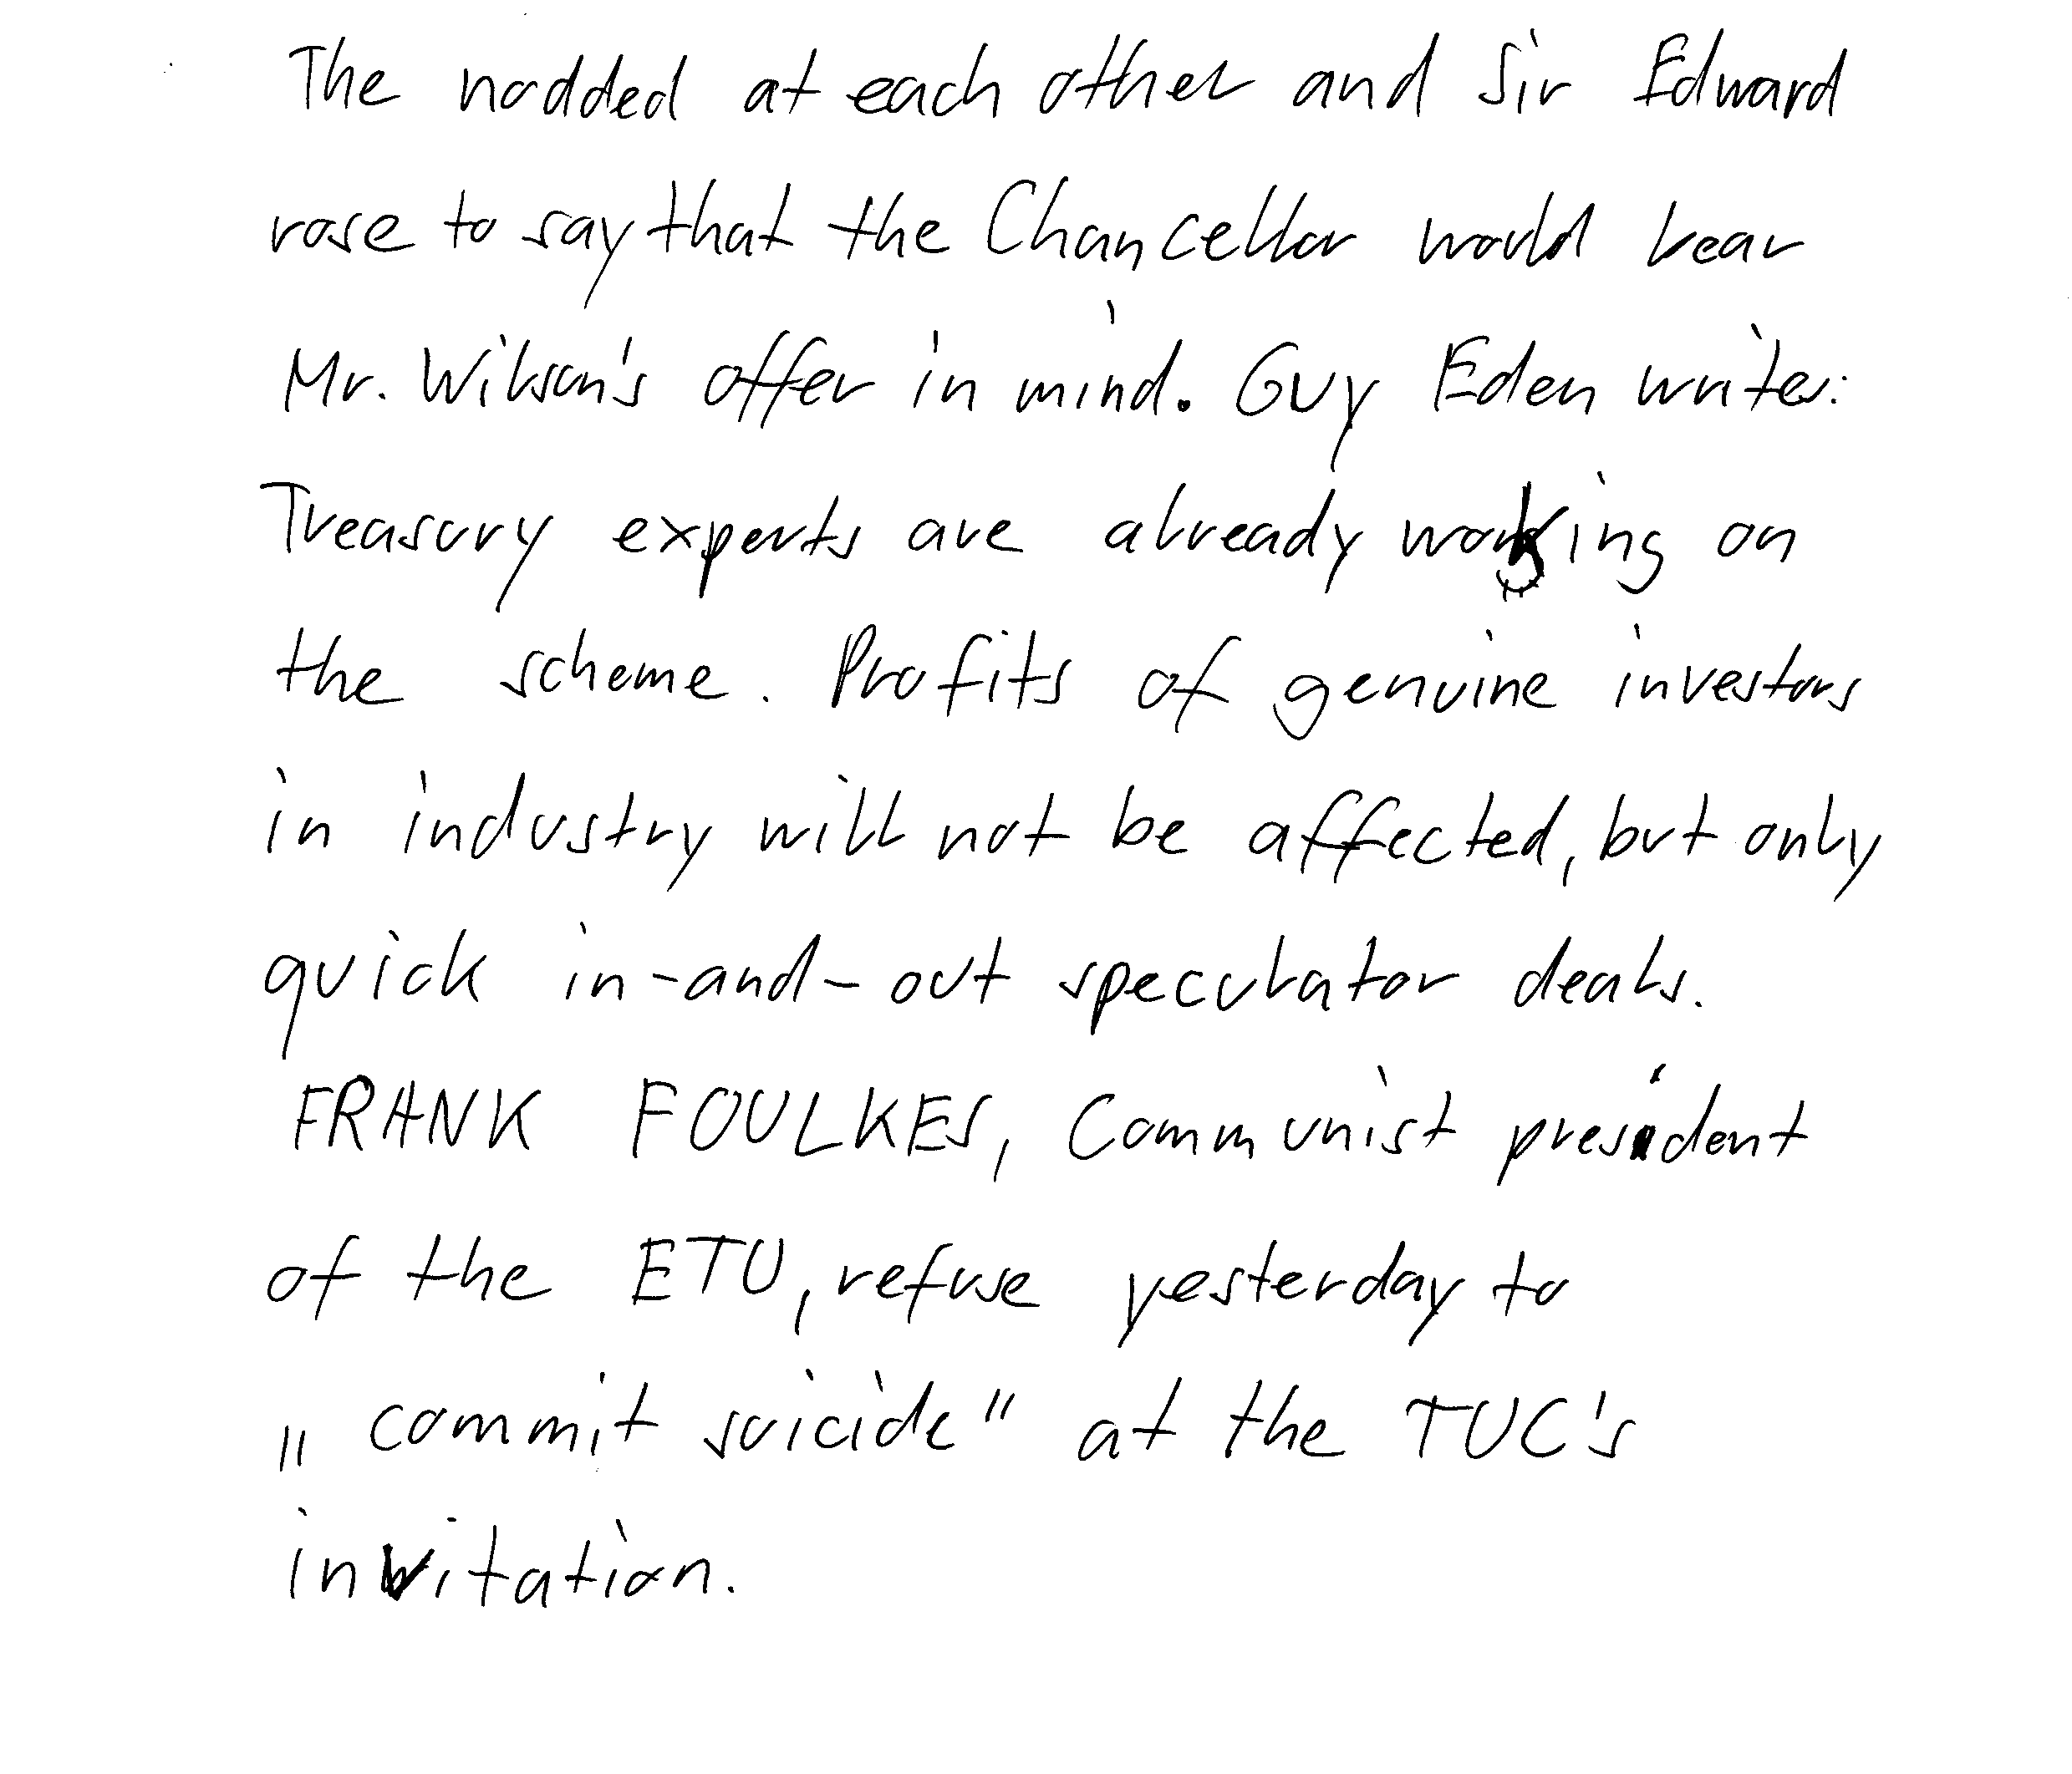 The nodded at each other and Sir Edward
rose to say that the Chancellor would bear
Mr. Wilson's offer in mind. Guy Eden writes:
Treasury experts are already working on
the scheme. Profits of genuine investors
in industry will not be affected, but only
quick in-and-out speculator deals.
FRANK FOULKES, Communist president
of the ETU, refuse yesterday to
„commit suicide" at the TUC's
invitation.